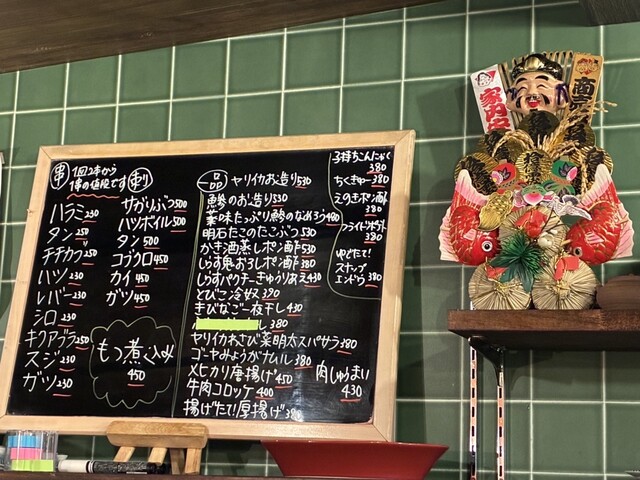 串
1回2本から
1本の値段です
ハラミ230
タン250
チヂカブ250
ハツ230
レバー230
シロ230
キクアブラ230
スジ230
ガツ230
刺り
サガリぶつ500
ハツボイル500
タン500
コブクロ450
カイ450
ガツ450
もつ煮込み
450
一品
ヤリイカお造り530
鯵のお造り530
薬味たっぷり鯵のなめろう480
明石たこのたこぶつ530
かき酒蒸しポン酢530
しらす鬼おろしポン酢380
しらすパクチーきゅうりあえ430
とんこ冷奴390
きびなご一夜干し430
し380
ヤリイカわさび菜明太スパサラ380
ゴーヤみょうがナムル380
メヒカリ唐揚げ450
牛肉コロッケ400
揚げたて!厚揚げ380
肉しゅうまい
430
子持ちこんにゃく
380
ちくきゅー380
えのきポン酢
380
フライドポテト
380
ゆでたて!
スナップ
エンドウ380
家内安
商